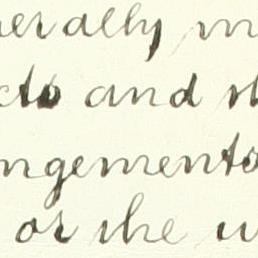 nerally m
cts and st
ngements
or the w